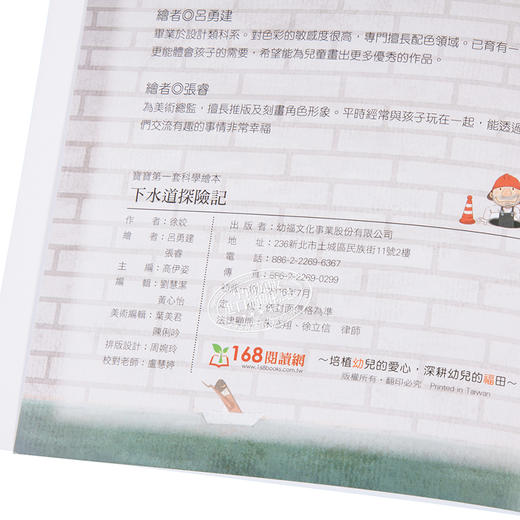 繪者◎呂勇建
畢業於設計類科系。對色彩的敏感度很高,專門擅長配色領域。已育有一
更能體會孩子的需要,希望能為兒童畫出更多優秀的作品。
繪者◎張睿
為美術總監,擅長推版及刻畫角色形象。平時經常與孩子玩在一起,能透過
們交流有趣的事情非常幸福
寶寶第一套科學繪本
下水道探險記
作 者:徐姣
繪 者:呂勇建
張睿
主 編:高伊姿
編 輯:劉慧潔
黃心怡
美術編輯:葉美君
陳俐吟
排版設計:周婉玲
校對老師:盧慧婷
出 版 者:幼福文化事業股份有限公司
地 址:236新北市土城區民族街11號2樓
電 話:886-2-2269-6367
傳 真:886-2-2269-0299
年7月
定 價:依封面價格為準
法律顧問:朱應翔、徐立信 律師
168閱讀網
www.168books.com.tw
~培植幼兒的愛心,深耕幼兒的福田~
版權所有・翻印必究 Printed in Taiwan